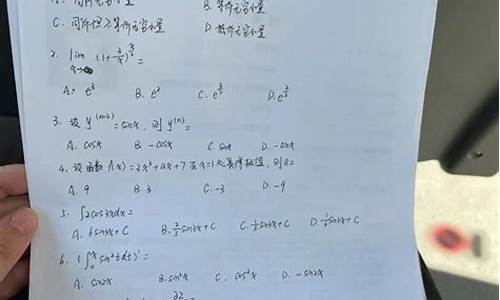 A. 同阶无穷小量 B. 等价无穷小量
C. 同阶但不等价无穷小量 D. 高阶无穷小量
2. lim x→∞ (1+2/x)^ =
A. e³ B. e² C. e D. e
3. 设 y⁽ⁿ⁻²⁾=sinx, 则 y⁽ⁿ⁾=
A. cosx B. -cosx C. sinx D. -sinx
4. 设函数 f(x)=3x³+ax+7 在x=1处取得极值, 则a=
A. 9 B. 3 C. -3 D. -9
5. ∫2cos3xdx=
A. 6sin3x+C B. 2/3 sin3x+C C. 1/3 sin3x+C D. 1/6 sin3x+C
6. (∫₀ˣ sin²tdt)'=
A. sin2x B. sin²x C. cos²x D. -sin2x